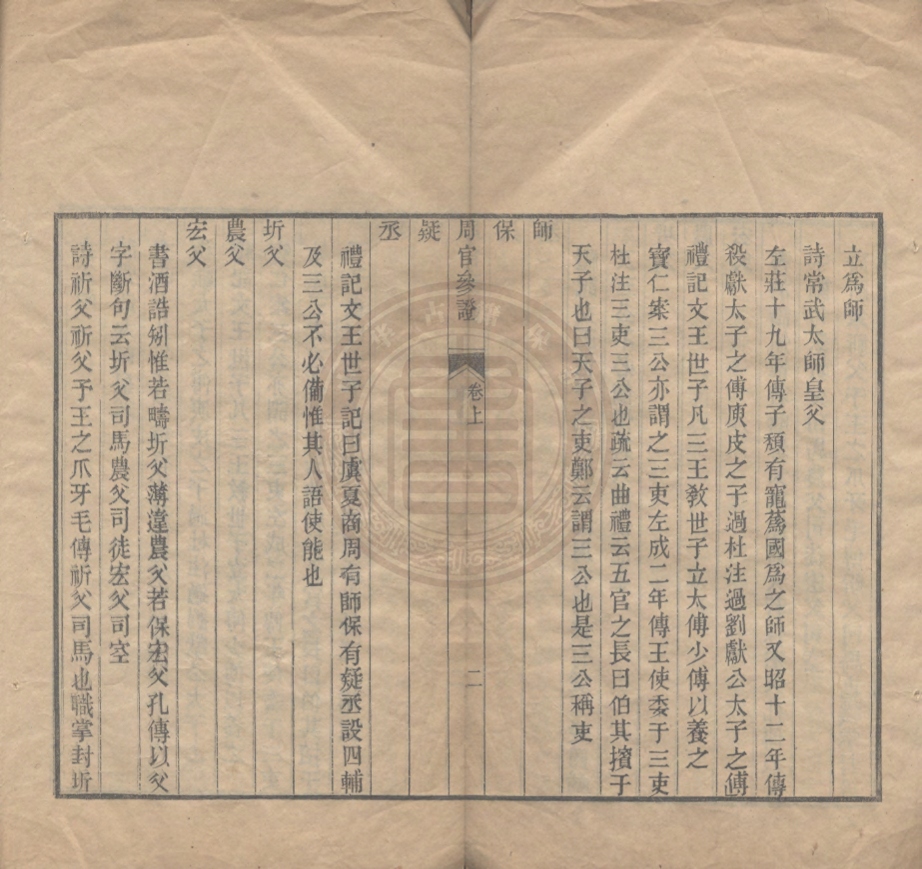 立爲師
詩常武太師皇父
左莊十九年傳子頽有寵蔿國爲之師又昭十二年傳
殺獻太子之傅庾皮之子過杜注過劉獻公太子之傅
禮記文王世子凡三王敎世子立太傅少傅以養之
寶仁案三公亦謂之三吏左成二年傳王使委于三吏
杜注三吏三公也疏云曲禮云五官之長曰伯其擯于
天子也曰天子之吏鄭云謂三公也是三公稱吏
師
保
周官參證 卷上 二
疑
丞
禮記文王世子記曰虞夏商周有師保有疑丞設四輔
及三公不必備惟其人語使能也
圻父
農父
宏父
書酒誥矧惟若疇圻父薄違農父若保宏父孔傳以父
字斷句云圻父司馬農父司徒宏父司空
詩祈父祈父予王之爪牙毛傳祈父司馬也職掌封圻